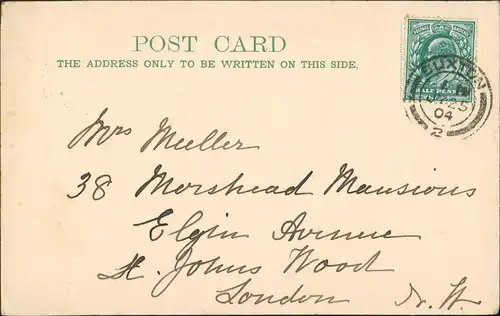 POST CARD
THE ADDRESS ONLY TO BE WRITTEN ON THIS SIDE.
HALF PENNY
BUXTON
25
04
2
Mrs Mueller
38 Morshead Mansions
Elgin Avenue
St. Johns Wood
London N. W.